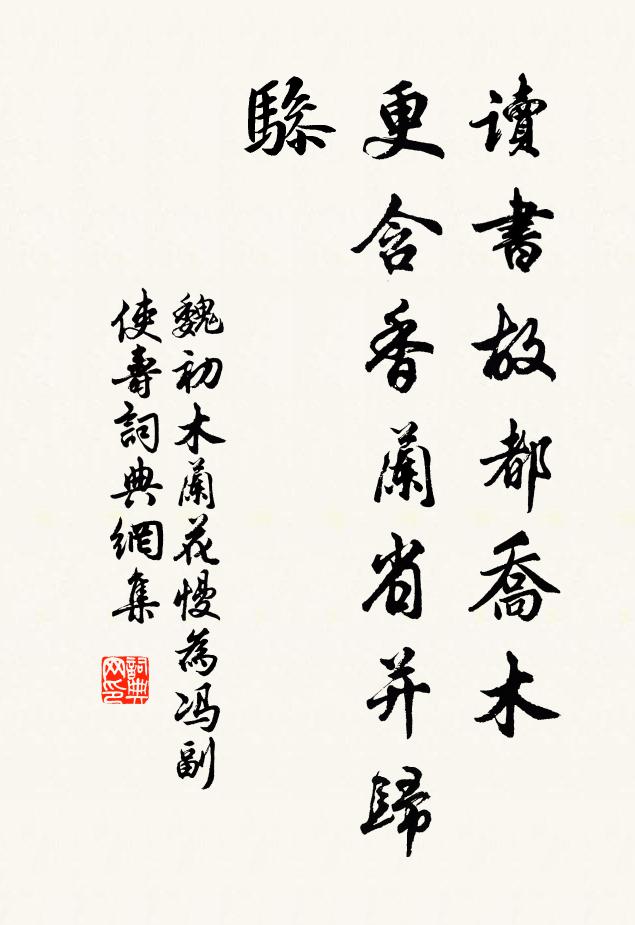 讀書故都喬木
更含香蘭省并歸
驂
魏初木蘭花慢為冯副
使壽詞典網集
詞典网印